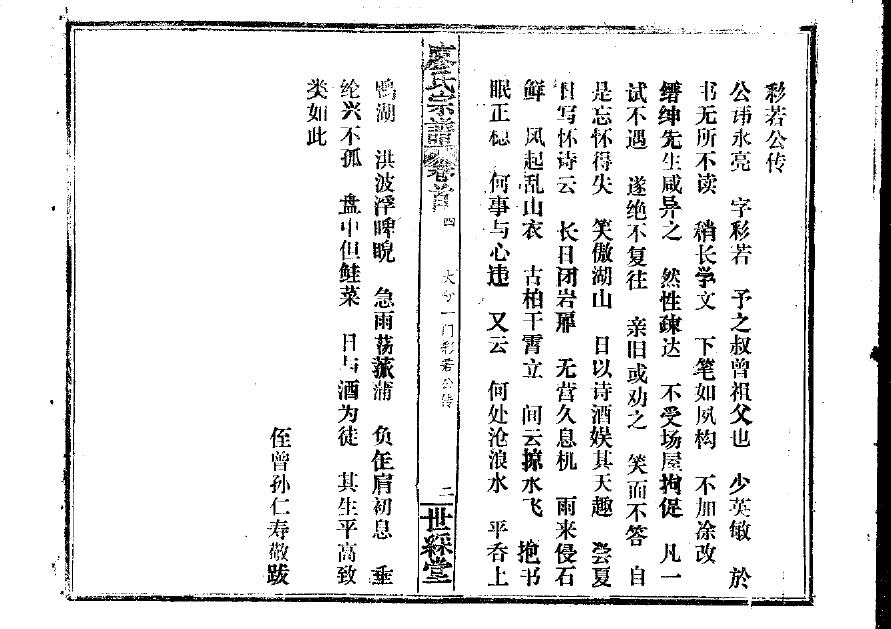 彩若公传
公讳永亮 字彩若 予之叔曾祖父也 少英敏 於
书无所不读 稍长学文 下笔如夙构 不加涂改
缙绅先生咸异之 然性疎达 不受场屋拘促 凡一
试不遇 遂绝不复往 亲旧或劝之 笑而不答 自
是忘怀得失 笑傲湖山 日以诗酒娱其天趣 尝夏
日写怀诗云 长日闭岩扉 无营久息机 雨来侵石
鲜 风起乱山衣 古柏干霄立 间云掠水飞 抱书
眠正稳 何事与心违 又云 何处沧浪水 平呑上
廖氏宗谱 卷首 四 大分一门彩若公传 二 世綵堂
鸭湖 洪波浮睥睨 急雨荡菰蒲 负任肩初息 垂
纶兴不孤 盘中但鲑菜 日与酒为徒 其生平高致
类如此
侄曾孙仁寿敬跋